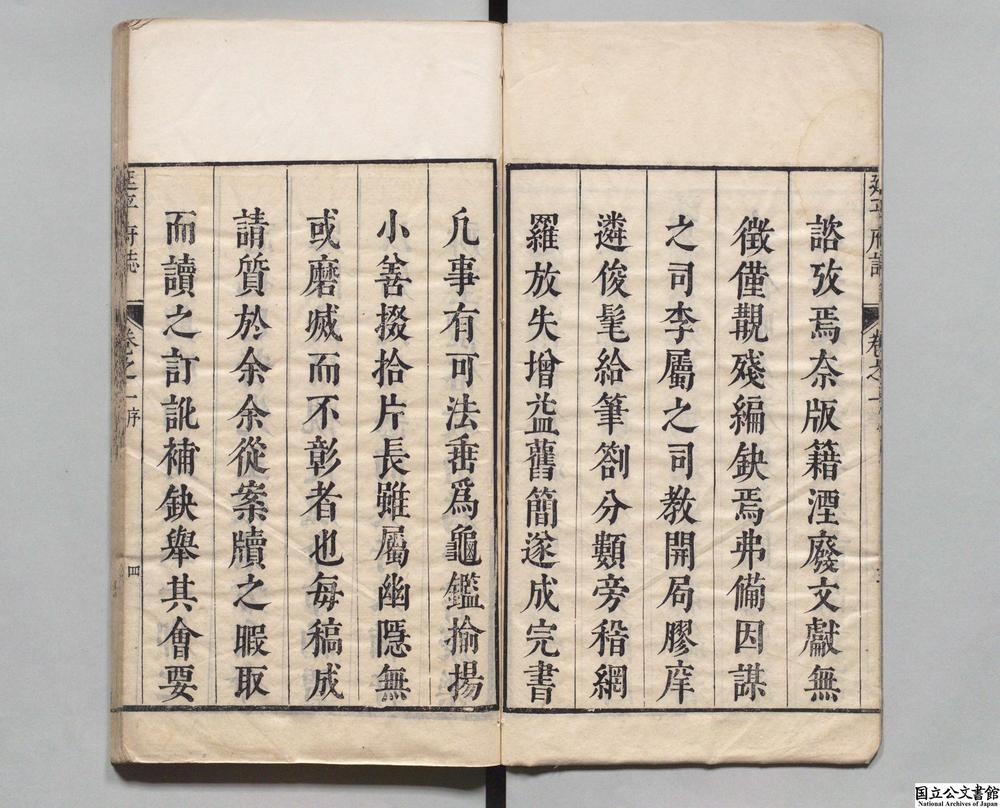 諮攷焉奈版籍湮廢文獻無
徵僅覩殘編缺焉弗備因謀
之司李屬之司教開局膠庠
遴俊髦給筆劄分類旁稽網
羅放失增益舊簡遂成完書
延平府誌
卷之一
凡事有可法垂爲龜鑑揄揚
小善掇拾片長雖屬幽隱無
或磨滅而不彰者也每稿成
請質於余余從案牘之暇取
而讀之訂訛補缺舉其會要
延平府誌
卷之一
序
四
国立公文書館
National Archives of Japan